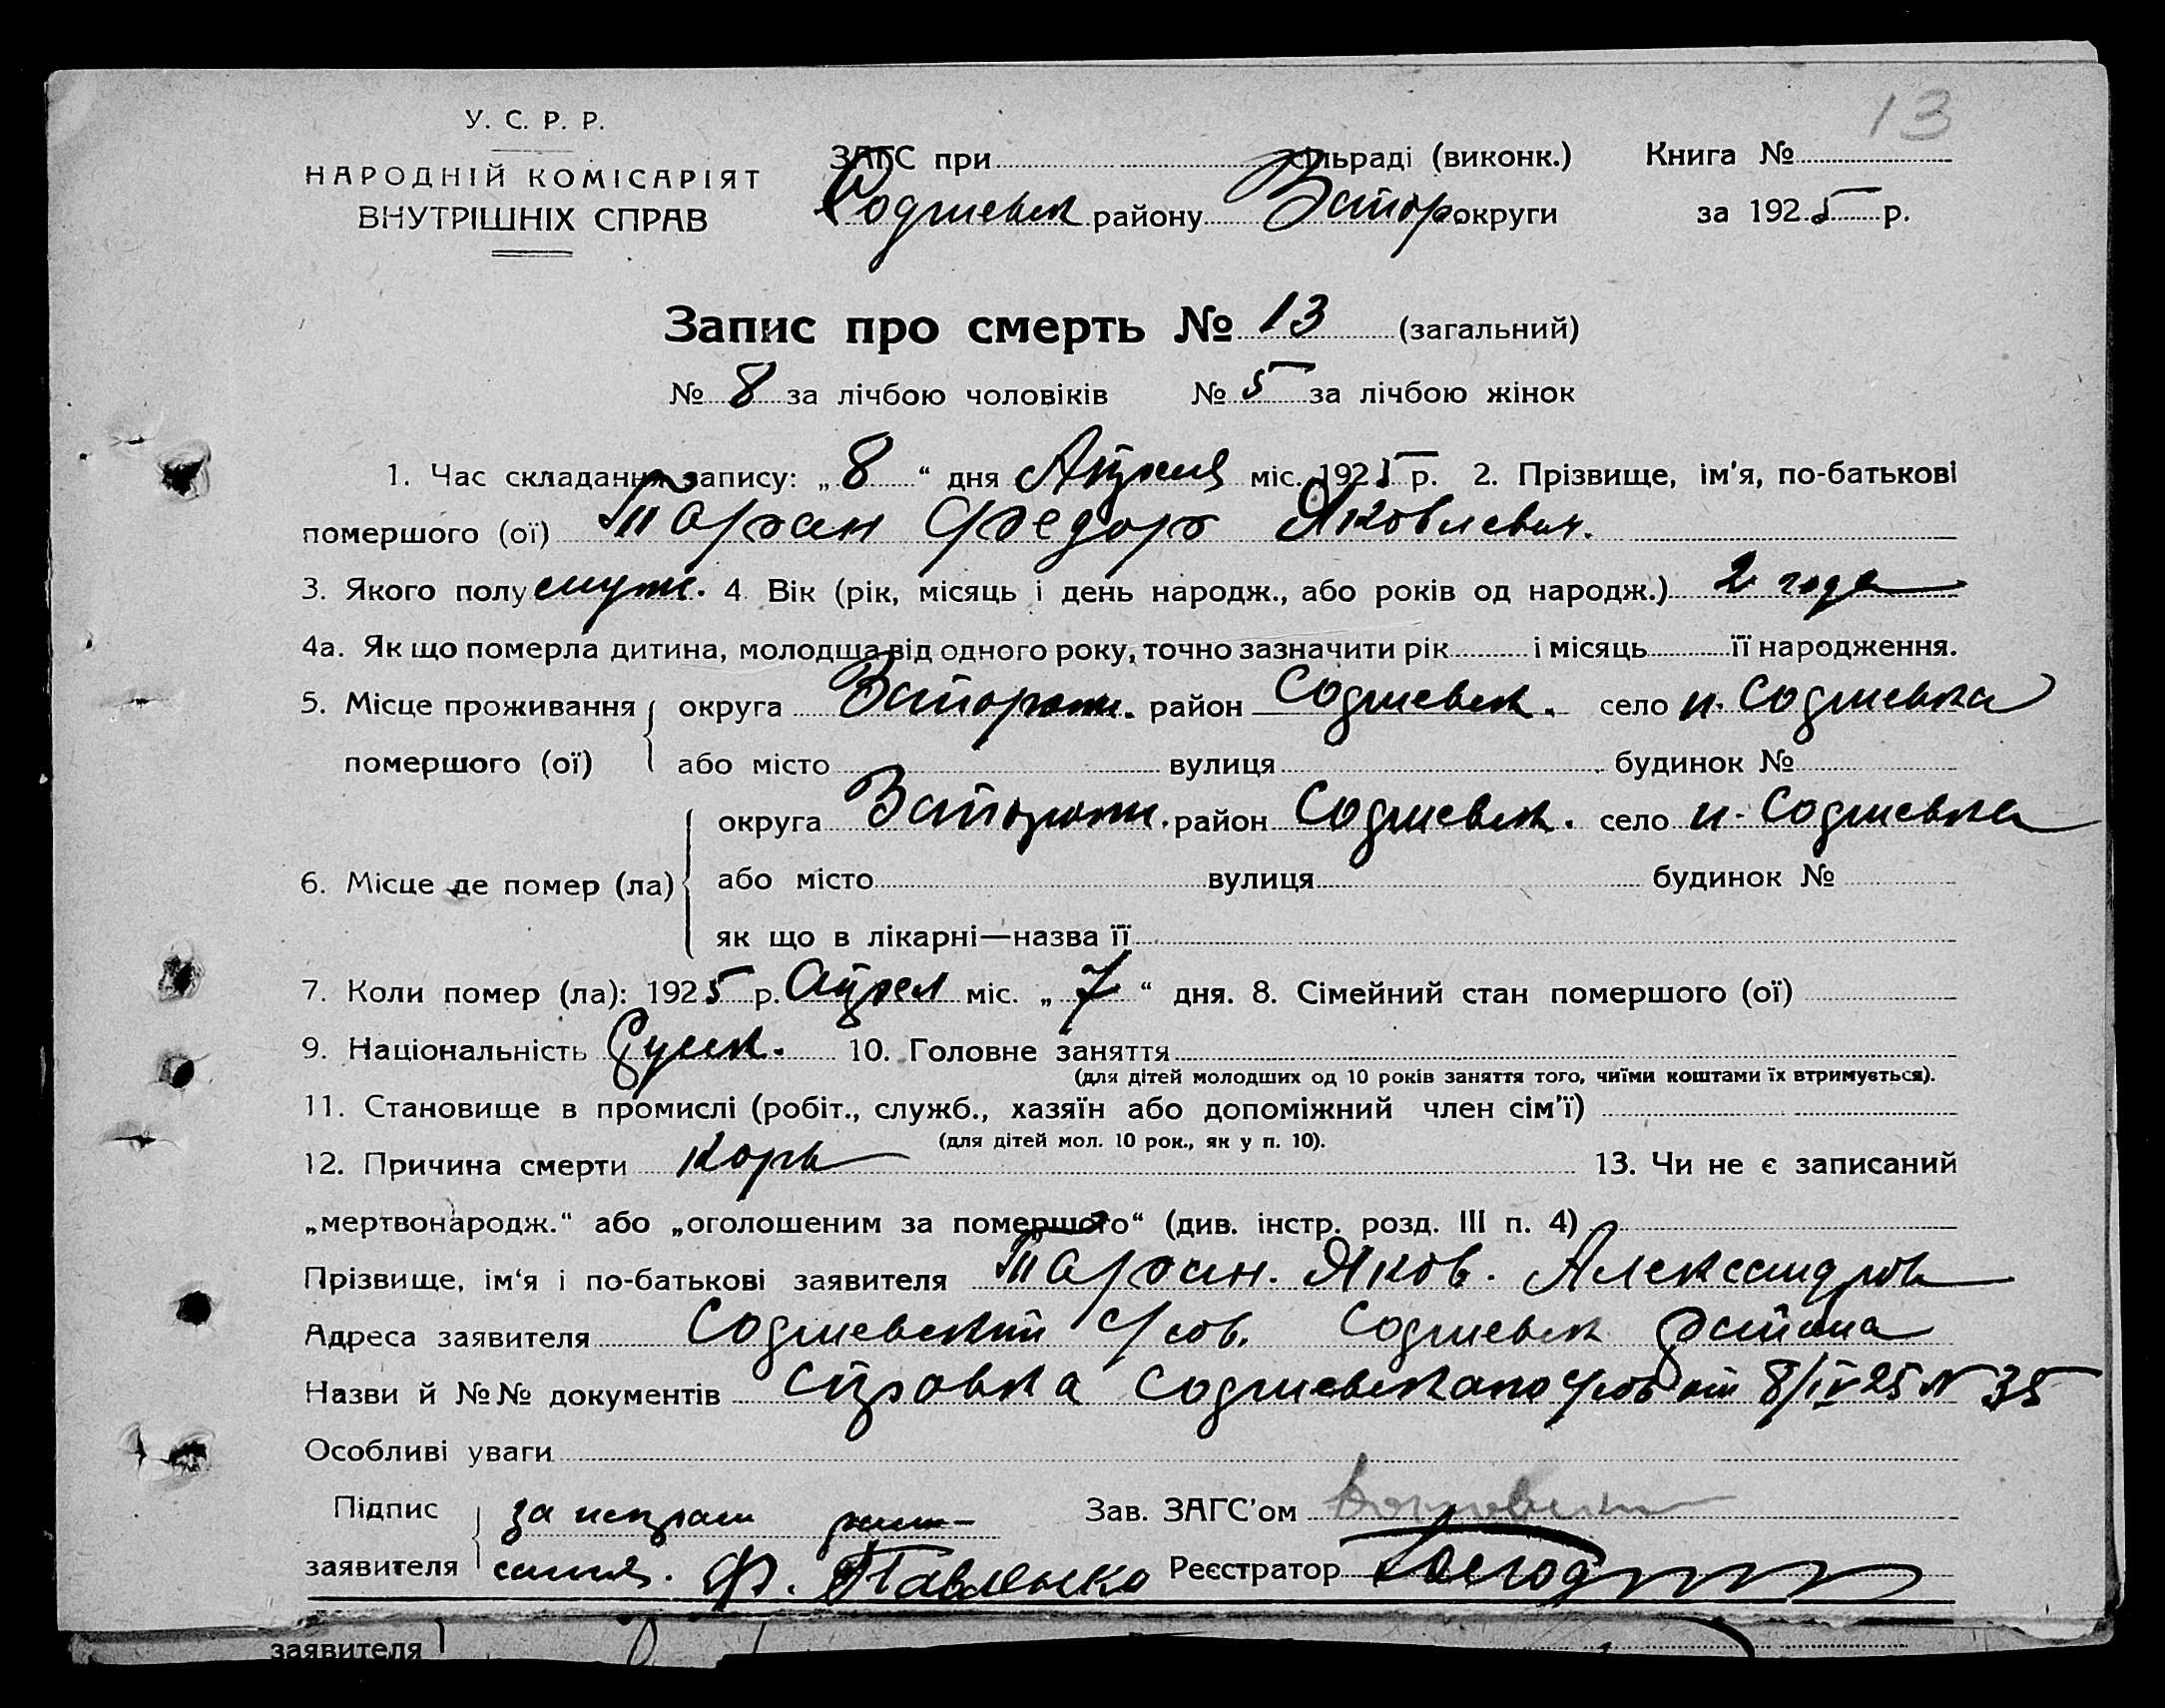 13
У. С. Р. Р.
НАРОДНІЙ КОМІСАРІЯТ
ВНУТРІШНІХ СПРАВ
ЗАГС при сільраді (виконк.) Книга №
Софиевск району Запор округи за 1925 р.
Запис про смерть № 13 (загальний)
№ 8 за лічбою чоловіків № 5 за лічбою жінок
1. Час складання запису: „8“ дня Апреля міс. 1925 р. 2. Прізвище, ім'я, по-батькові
помершого (ої) Таран Федор Яковлевич.
3. Якого полу муж. 4 Вік (рік, місяць і день народж., або років од народж.) 2 года
4а. Як що померла дитина, молодша від одного року, точно зазначити рік і місяць її народження.
5. Місце проживання помершого (ої) округа Запорож. район Софиевск. село н. Софиевка
або місто вулиця будинок №
6. Місце де помер (ла) округа Запорож. район Софиевск. село н. Софиевка
або місто вулиця будинок №
як що в лікарні—назва її
7. Коли помер (ла): 1925 р. Апрел міс. „7“ дня. 8. Сімейний стан помершого (ої)
9. Національність Русск. 10. Головне заняття
(для дітей молодших од 10 років заняття того, чиїми коштами їх втримується).
11. Становище в промислі (робіт., служб., хазяїн або допоміжний член сім'ї)
(для дітей мол. 10 рок., як у п. 10).
12. Причина смерти Корь 13. Чи не є записаний
„мертвонародж.“ або „оголошеним за помершого“ (див. інстр. розд. III п. 4)
Прізвище, ім'я і по-батькові заявителя Таран. Яков. Александров
Адреса заявителя Софиевский с/сов. Софиевск района
Назви й №№ документів Справка Софиевскаго с/сов от 8/IV 25 N 35
Особливі уваги
Підпис заявителя за неграм
Ф. Павленко
Зав. ЗАГС'ом
Реєстратор
заявителя